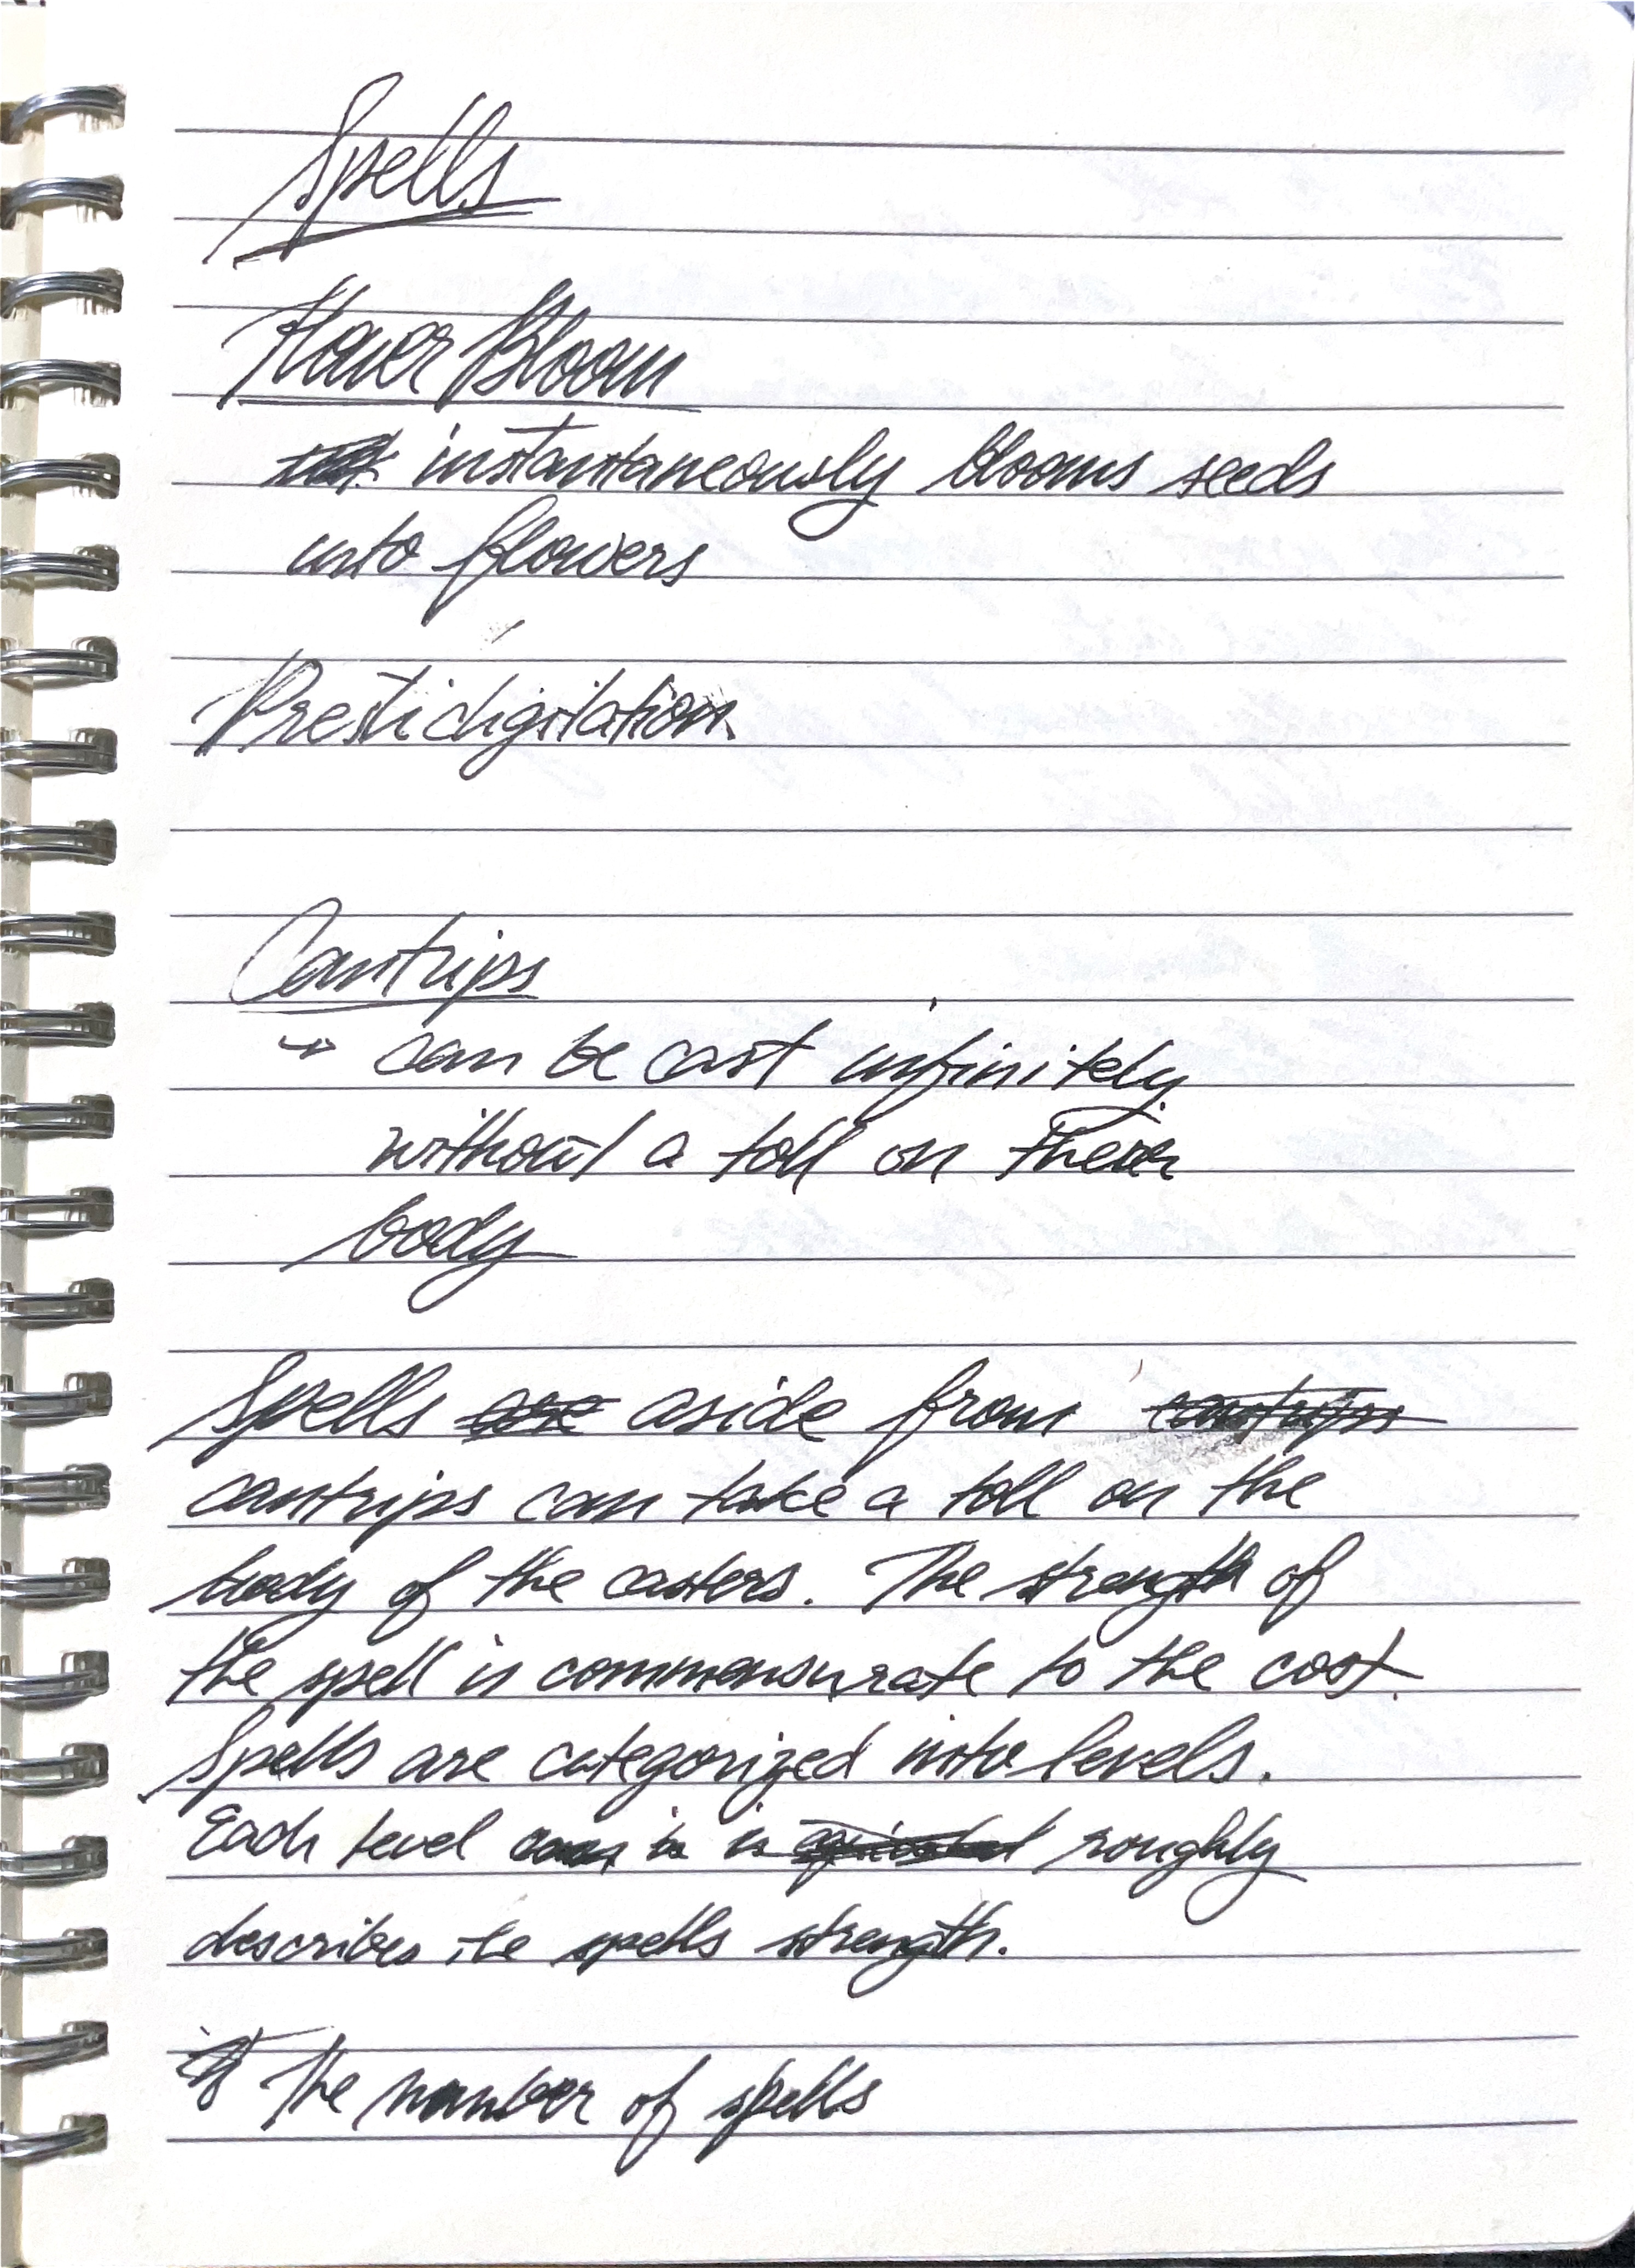 Spells
Flower Bloom
instantaneously blooms seeds
into flowers
Prestidigitation
Cantrips
→ can be cast infinitely
without a toll on their
body
Spells are aside from cantrips
cantrips can take a toll on the
body of the casters. The strength of
the spell is commensurate to the cost.
Spells are categorized into levels.
Each level is roughly
describes the spells strength.
The number of spells